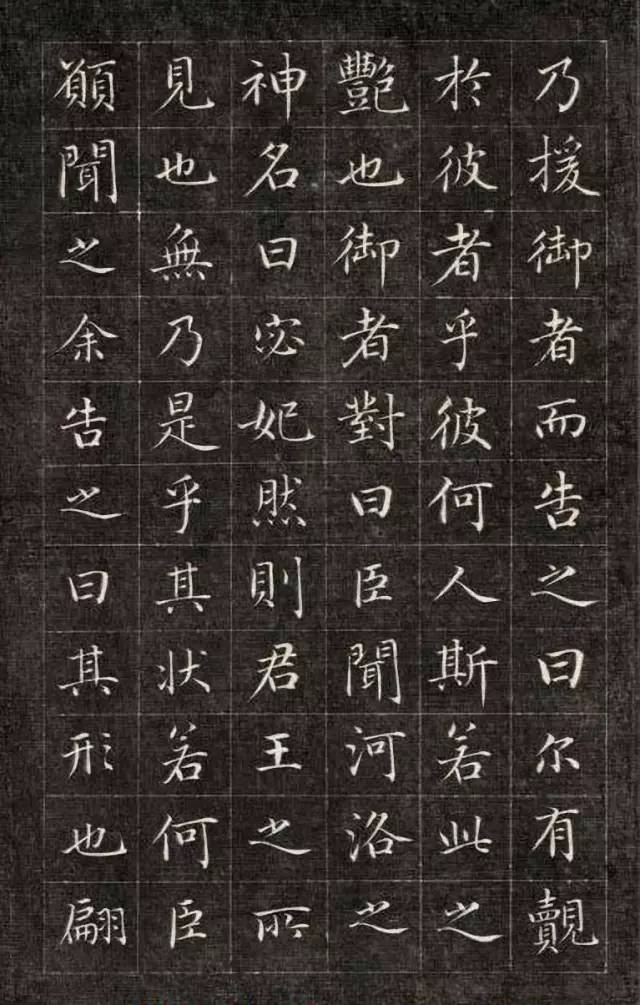 乃援御者而告之曰尔有觌
於彼者乎彼何人斯若此之
艷也御者對曰臣聞河洛之
神名曰宓妃然則君王之所
見也無乃是乎其状若何臣
願聞之余告之曰其形也翩